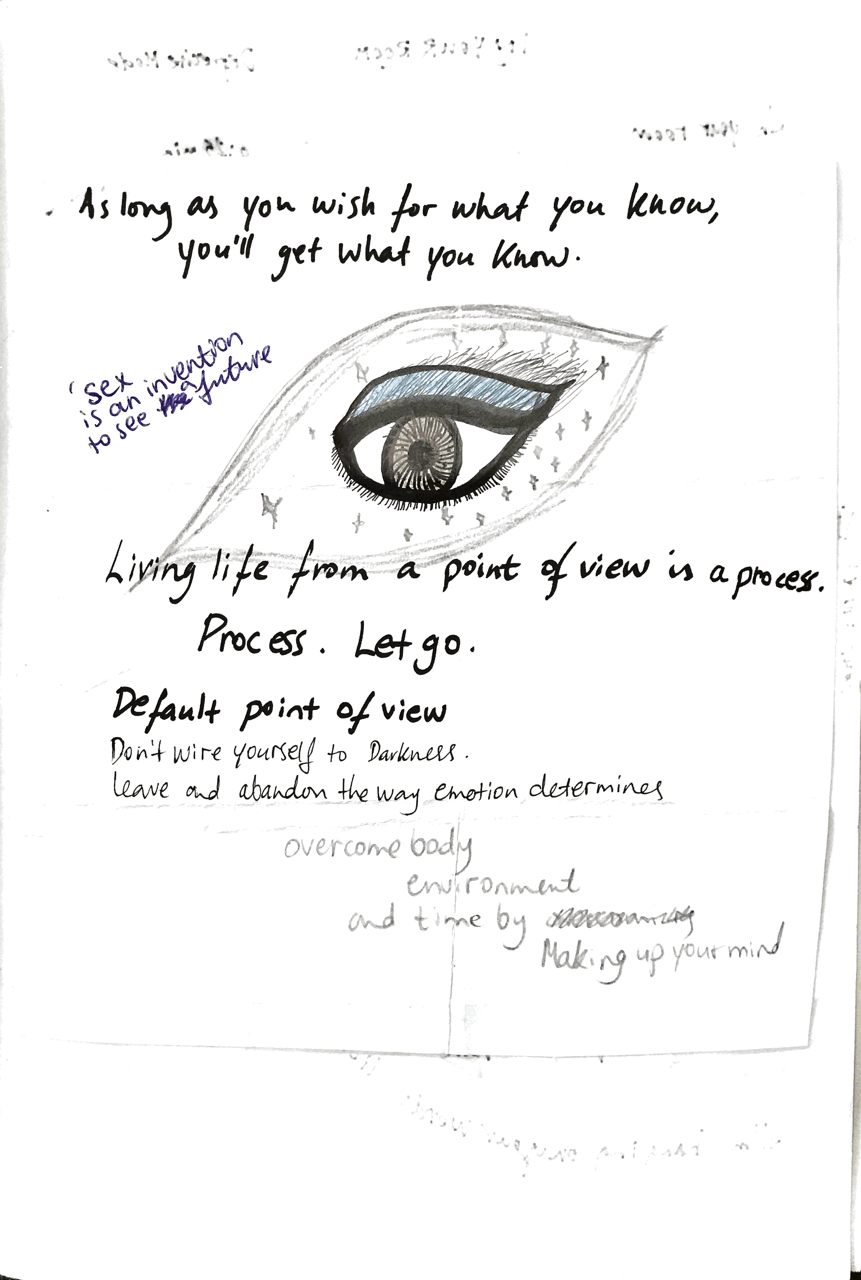 As long as you wish for what you know,
you'll get what you know.
'sex
is an invention
to see a future
Living life from a point of view is a process.
Process. Let go.
Default point of view
Don't wire yourself to Darkness.
leave and abandon the way emotion determines
overcome body
environment
and time by
Making up your mind